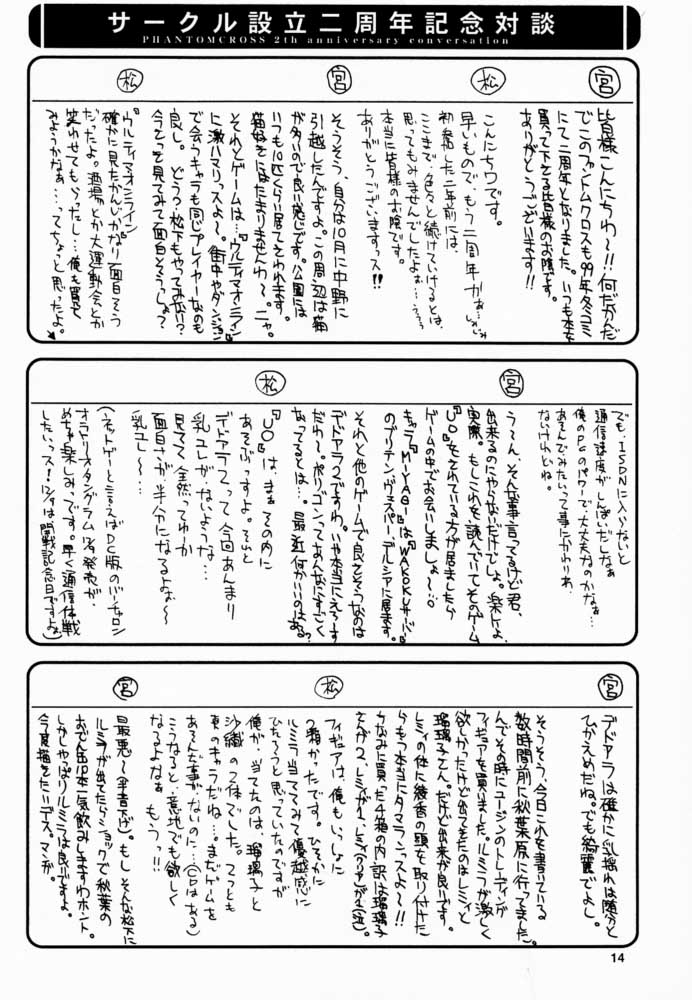 サークル設立二周年記念対談
PHANTOMCROSS 2th anniversary conversation
宮
皆様こんにちわ〜!!何だかんだ
でこのファントムクロスも99年冬コミ
にて二周年となりました。いつも本を
買って下さる皆様のお陰です。
ありがとうございます!!
松
こんにちワです。
早いもので、もう二周年かぁ…しみじみ
初発した二年前には、
ここまで色々と続けていけるとは、
思ってもみませんでしたよぉ…
本当に皆様のお陰です。
ありがとうございますっス!!
宮
そうそう、自分は10月に中野に
引越したんですよ。この周辺は猫
が多いので良い感じです。公園には
いつも10匹くらい居てさわれます。
猫好きにはたまりませんわ〜。ニャ。
それとゲームは…『ウルティマオンライン』
に激ハマリっスよ〜。街中やダンジョン
で会うキャラも同じプレイヤーなのも
良し。どう?松下もやってみない?
今さっき見てみて面白そうっしょ?
松
『ウルティマオンライン』
確かに見たかんじかなり面白そう
だったよ。酒場とか大運動会とか
笑わせてもらったし…俺も買って
みようかなぁ…ってちょっと思ったよ。
でも、ISDNに入らないと
通信速度がしんぱいだしなぁ
俺のPCのパワーで大丈夫なのかなぁ…
あそんでみたいって事にかわりわ
ないけれどね。
宮
う〜ん、そんな事言ってるけど君、
出来るのにやらないだけでしょ。楽しいよ
実際。もしこれを読んでいてそのゲーム
『UO』をされている方が居ましたら
ゲームの中でお会いしましょ〜:o
キャラ『MIYABI』は『WAKOKUサーバー』
のブリテン、ヴェスパー、デルシアに居ます。
それと他のゲームで良さそうなのは
デドアラ2ですわ。いや本当にえろーす
だわ〜。ポリゴンってあんなにすごく
なってるとは…。最近何かいいのはある?
松
『UO』は、まぁその内に
あそぶっすよ。それと
デドアラ2って今回あんまり
乳ユレが、ないような…
見てて、全然ってゆーか
面白さが半分になるよねぇ〜
乳ユレ〜…
(ネットゲーと言えばDC版のバーチャロン
オラトリオタングラム12/9発売が、
めちゃ楽しみっです。早く通信体戦
したいっス!12/9は開戦記念日ですよね)
宮
デドアラは確かに乳揺れは随分と
ひかえめだね。でも綺麗でよし。
そうそう、今日これを書いている
数時間前に秋葉原に行ってました。
んでその時にユージンのトレーディング
フィギュアを買いました。ルミラが激しく
欲しかったけど出てきたのはレミィと
瑠璃子さん。だけど出来が良いです。
レミィの体に綾香の頭を取り付けた
らもう本当にタマランっスよ〜!!
ちなみに買った4箱の内訳は瑠璃子
さんが2、レミィが1、レミィ(クリア)が1(泣)。
松
フィギュアは、俺もいっしょに
2箱かったです。ひそかに
ルミラ当ててみて優越感に
ひたろうと思っていたのですが
俺が、当てたのは、瑠璃子と
沙織の2体でした。2つとも
東のキャラだね…まだゲームを
あそんだ事がないのに…(CDはある)
こうなると意地でも欲しく
なるよなぁ もうっ!!
宮
最悪〜(半音下げ)。もしそんな松下に
ルミラが出てたらショックで秋葉の
おでん缶10本一気飲みしますわホント。
しかしやっぱりルミラは良いですよ。
今度描きたいデス。マンガ。
14